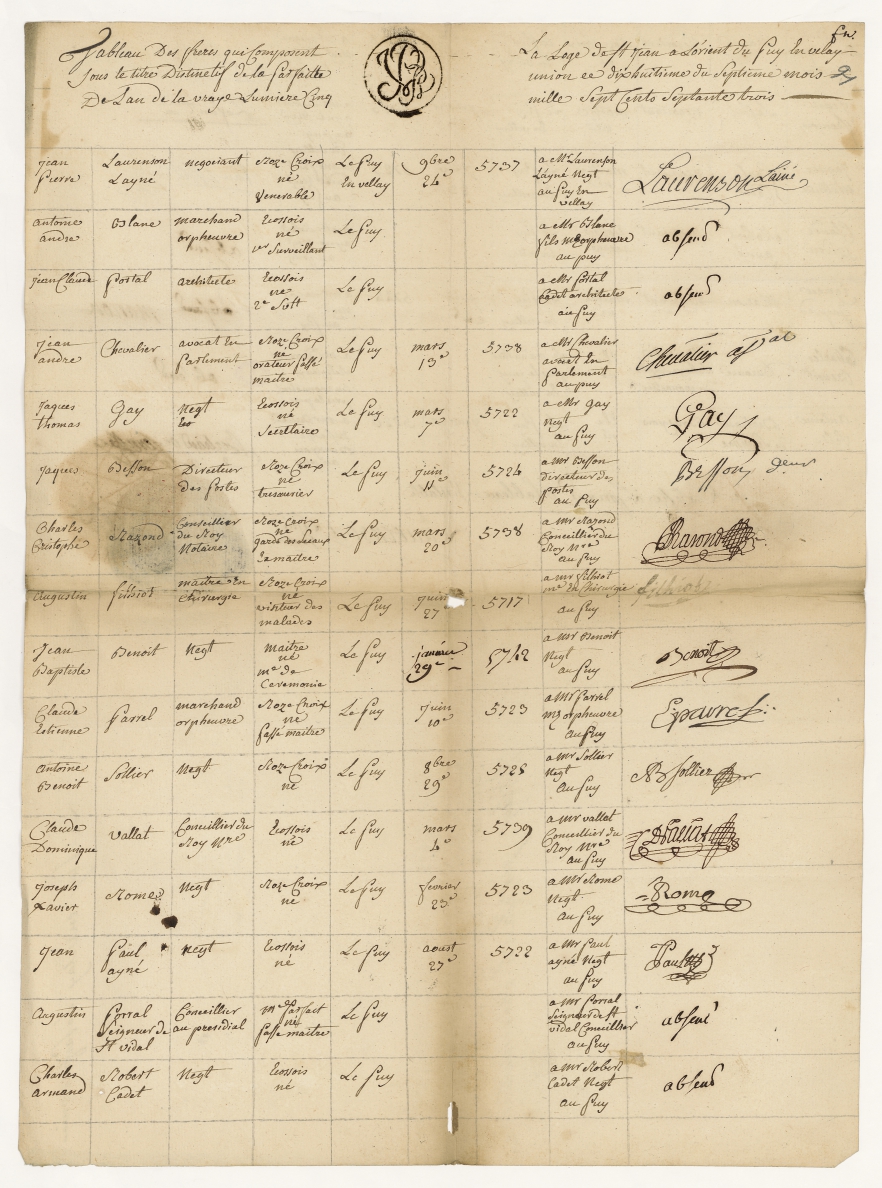 Tableau Des freres qui Composent La Loge de St Jean a Lorient du Puy En velay
sous le titre Distinctif de la Parfaitte union ce dixhuitieme du Septieme mois
De L'an de la vraye Lumiere Cinq mille Sept Cents Septante trois
Jean Laurenson negociant Roze Croix Le Puy 9bre 5737 a Mr Laurenson Laurenson Lainé
Pierre Layné né En vellay 24e Layné Negt
venerable au Puy En
vellay
antoine Blane marchand Ecossois Le Puy a Mr Blane absend
andre orpheuvre né fils md orpheuvre
1er Surveillant au puy
Jean Claude Portal architecte Ecossois Le Puy a Mr Portal absend
né Cadet architecte
2e Sutt au Puy
Jean Chevalier avocat En Roze Croix Le Puy mars 5738 a Mr Chevalier Chevalier
andre Parlement né 13e avocat En
orateur passé Parlement
maitre au puy
Jaques Gay Negt Ecossois Le Puy mars 5722 a Mr Gay Gay
thomas né 7e Negt
Secrettaire au Puy
Jaques Besson Directeur Roze Croix Le Puy Juin 5724 a Mr Besson Besson
des Postes né 11e directeur des
tresaurier Postes
au Puy
Charles Razond Conseillier Roze Croix Le Puy mars 5738 a Mr Razond Razond
Cristophe du Roy né 20e Conseillier du
Notaire garde des seaux Roy Nre
Ex maitre au Puy
Augustin filhiot maitre En Roze Croix Le Puy Juin 5717 a Mr filhiot filhiot
Chirurgie né 27e me En Chirurgie
visiteur des au Puy
malades
Jean Benoit Negt maitre Le Puy janvier 5742 a Mr Benoit Benoit
Baptiste né 29e Negt
me de au Puy
Ceremonie
Claude Parrel marchand Roze Croix Le Puy Juin 5723 a Mr Parrel
Etienne orpheuvre né 10e md orpheuvre
passé maitre au Puy
Antoine Sollier Negt Roze Croix Le Puy 8bre 5725 a Mr Sollier AB Sollier
Benoit né 29e Negt
au Puy
Claude vallat Conseillier du Ecossois Le Puy mars 5739 a Mr vallat
Dominique Roy Nre né 4e Conseillier du
Roy Nre
au Puy
Joseph Rome Negt Roze Croix Le Puy fevrier 5723 a Mr Rome Rome
Xavier né 23e Negt
au Puy
Jean Paul Negt Ecossois Le Puy aoust 5722 a Mr Paul Paul
ayné né 27e ayné Negt
au Puy
Augustin Porral Conseillier me Parfact Le Puy a Mr Porral absend
Seigneur de au presidial né Seigneur de St
St vidal passé maitre vidal Conseillier
au Puy
Charles Robert Negt Ecossois Le Puy a Mr Robert absend
armand Cadet né Cadet Negt
au Puy